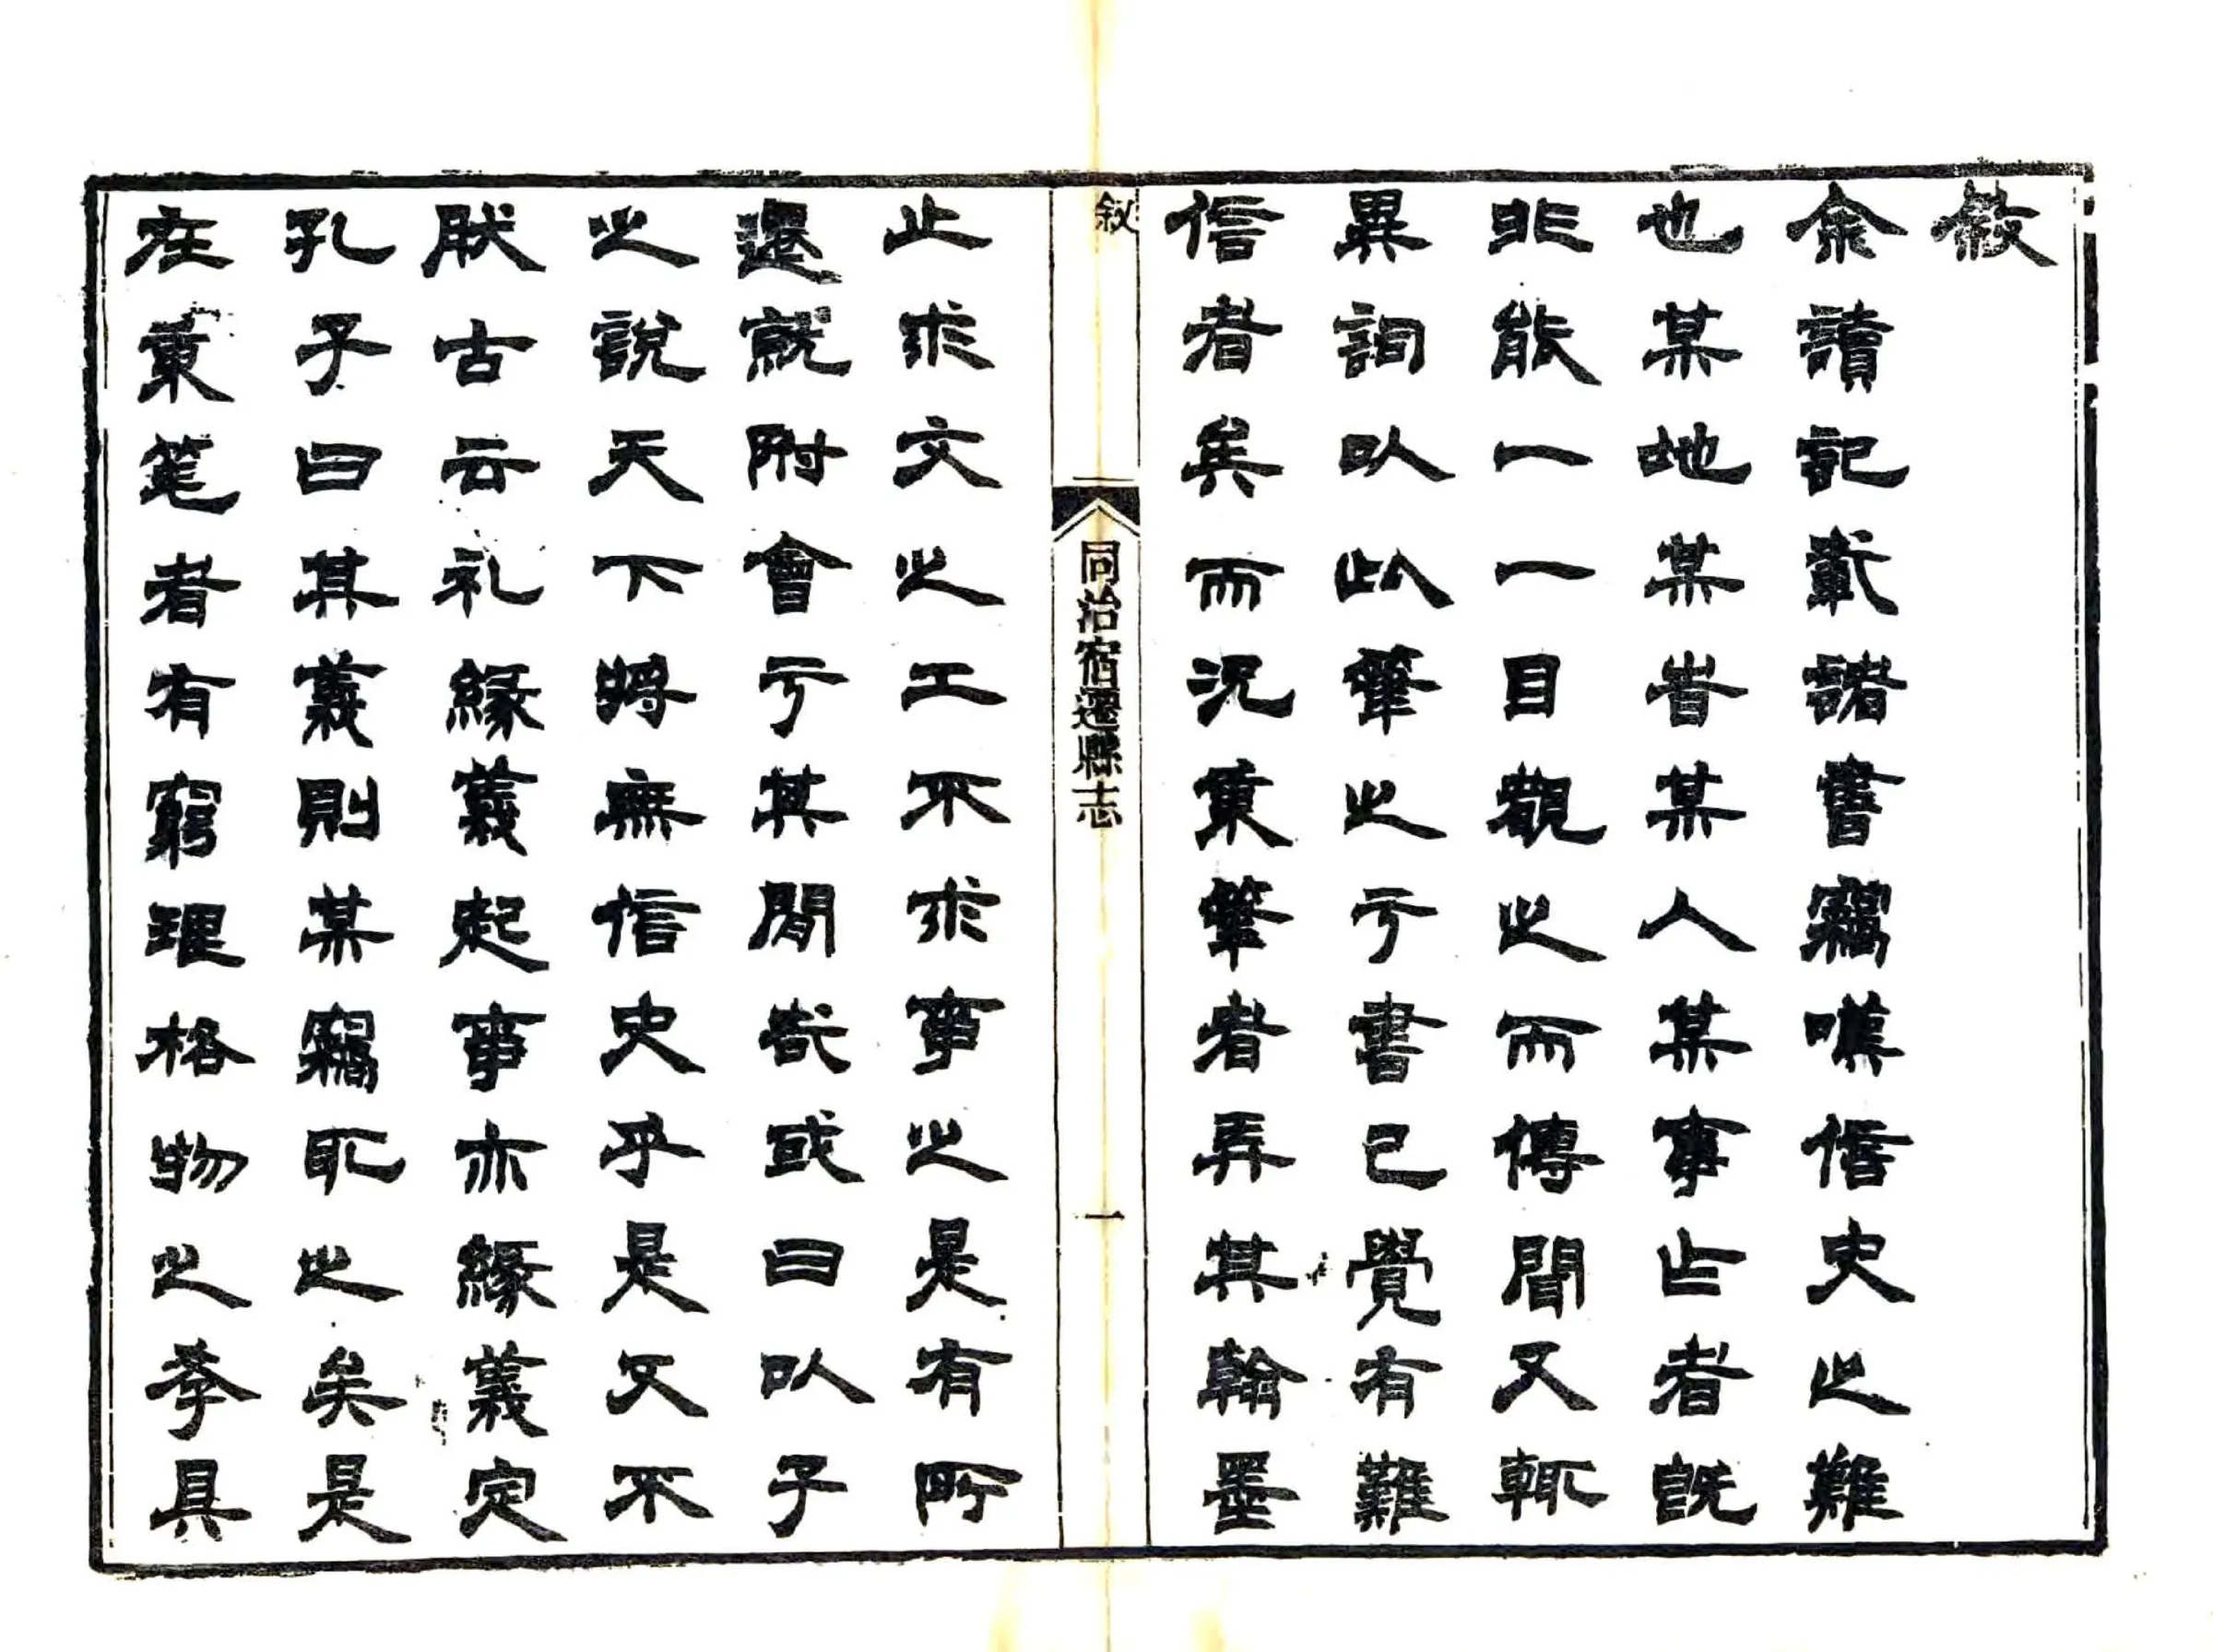 敘
余讀記載諸書竊嘆信史之難
也某地某峕某人某事乍者旣
非能一一目覩之而傳聞又輒
異詞以此筆之于書已覺有難
信者矣而況秉筆者弄其翰墨
叙
同治宿遷縣志
一
止求文之工不求事之是有所
遷就附會于其閒哉或曰以子
之說天下將無信史乎是又不
肰古云礼緣義起事亦緣義定
孔子曰其義則某竊取之矣是
在秉笔者有窮理格物之斈具